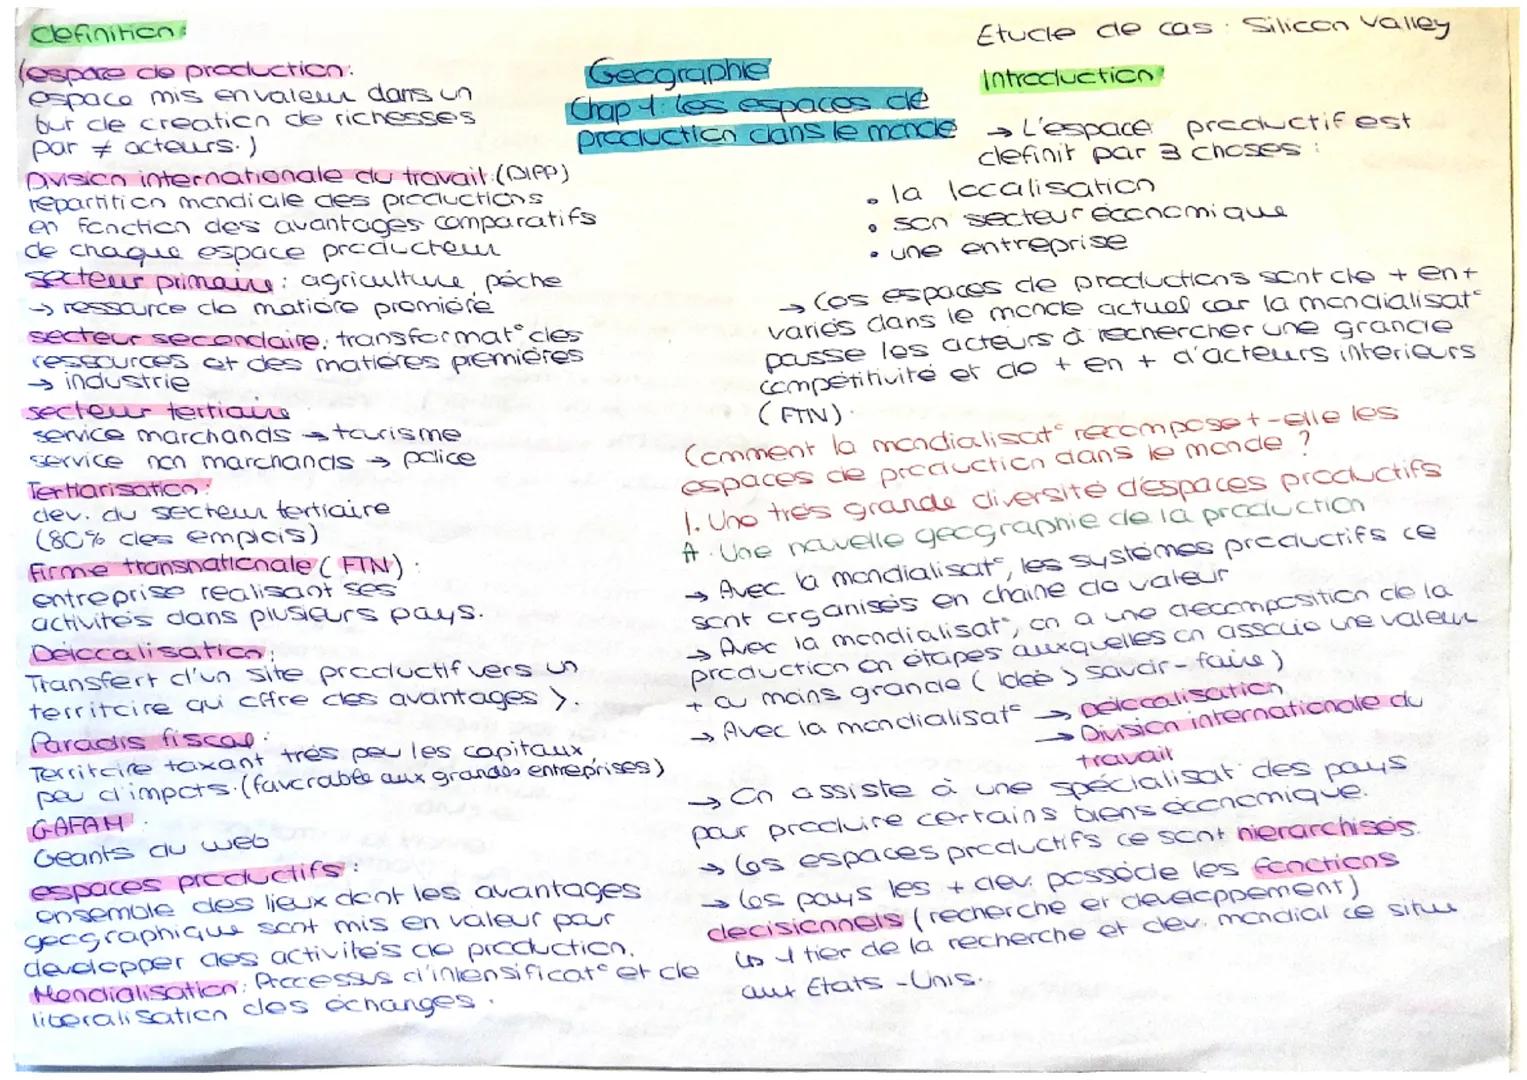 definition:
(espace de production:
espace mis en valeur dans un
but de creation de richesses
par ≠ acteurs.)
Division internationale du travail (DIPP)
repartition mondiale des productions
en fonction des avantages comparatifs
de chaque espace producteur
secteur primaire: agriculture, pêche
→ ressource de matière première
secteur secondaire: transformat° des
ressources et des matières premières
→ industrie
secteur tertiaire
service marchands → tourisme
service non marchands → police
Tertiarisation:
dev. du secteur tertiaire
(80% des emplois)
firme transnationale (FTN):
entreprise realisant ses
activités dans plusieurs pays.
Délocalisation:
Transfert d'un site productif vers un
territoire qui offre des avantages >.
Paradis fiscal:
Territoire taxant très peu les capitaux
peu d'impots. (favorable aux grandes entreprises)
GAFAM:
Geants du web
espaces productifs:
ensemble des lieux dont les avantages
geographique sont mis en valeur pour
developper des activités de production.
Mondialisation: Processus d'intensificat° et de
liberalisation des échanges.
Geographie
Chap 1: les espaces de
production dans le monde
Etude de cas: Silicon Valley
Introduction:
→ L'espace productif est
definit par 3 choses:
• la localisation
• son secteur économique
• une entreprise
→ Les espaces de productions sont de + en +
variés dans le monde actuel car la mondialisat°
pousse les acteurs à rechercher une grande
compétitivité et de + en + d'acteurs interieurs
(FTN).
Comment la mondialisat° recompose t-elle les
espaces de production dans le monde ?
1. Une très grande diversité d'espaces productifs
A. Une nouvelle geographie de la production
→ Avec la mondialisat°, les systèmes productifs ce
sont organisés en chaine de valeur
→ Avec la mondialisat°, on a une decomposition de la
production en étapes auxquelles on associe une valeur
+ ou moins grande (idée > savoir-faire)
→ Avec la mondialisat° → Délocalisation
→ Division internationale du
travail
→ On assiste à une spécialisat° des pays
pour produire certains biens économique.
→ Les espaces productifs ce sont hierarchisés.
→ Les pays les + dev. possède les fonctions
decisionnels (recherche et developpement)
↳ 1 tier de la recherche et dev. mondial ce situe
aux Etats-Unis.